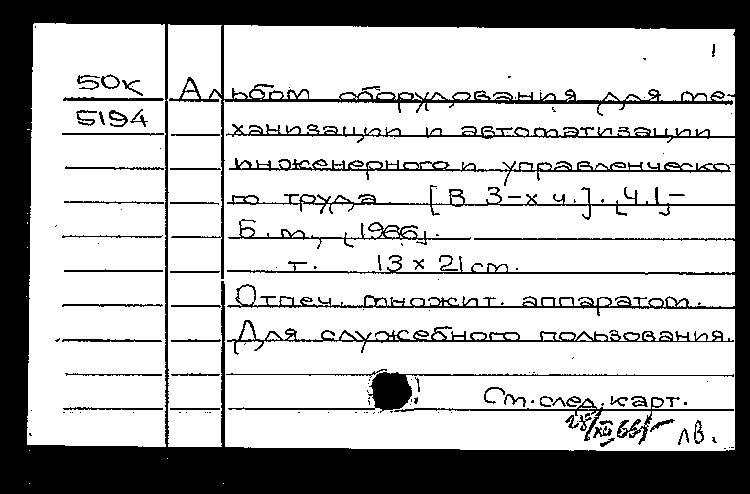 1
50к Альбом оборудования для ме-
5194 ханизации и автоматизации
инженерного и управленческо-
го труда. [В 3-х ч.]. [Ч.1-
Б.м., [1966].
т. 13 x 21 см.
Отпеч. множит. аппаратом.
Для служебного пользования.
См. след. карт.
28/XII 66 г. лв.